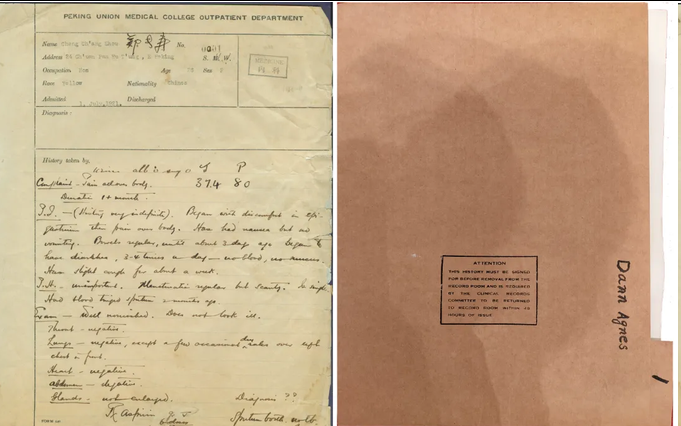 PEKING UNION MEDICAL COLLEGE OUTPATIENT DEPARTMENT
Name
No.
Address
Occupation
Age
Sex
Race Yellow Nationality
Admitted 1 July, Discharged
Diagnosis:
History taken by,
T P
Complaint - Pain all over body. 37.4 80
Duration 1+ month.
P.I. — (History very indefinite). Began with discomfort in epi-
gastrium then pain over body. Has had nausea but no
vomiting. Bowels regular, until about 2 day ago began to
have diarrhoea, 3-4 times a day — no blood, no mucus.
Has slight cough for about a week.
P.H. — unimportant. Menstruation regular but scanty.
Had blood tinged sputum 2 months ago.
Exam — Well nourished. Does not look ill.
Throat - negative.
Lungs — negative, except a few occasional dry rales over
chest in front.
Heart — negative.
Abdomen — negative.
Glands — not enlarged. Diagnosis ??
Rx Aspirin
Sputum
ATTENTION
THIS HISTORY MUST BE SIGNED
FOR BEFORE REMOVAL FROM THE
RECORD ROOM AND IS REQUIRED
BY THE CLINICAL RECORDS
COMMITTEE TO BE RETURNED
TO RECORD ROOM WITHIN
HOURS OF ISSUE
Dann Agnes